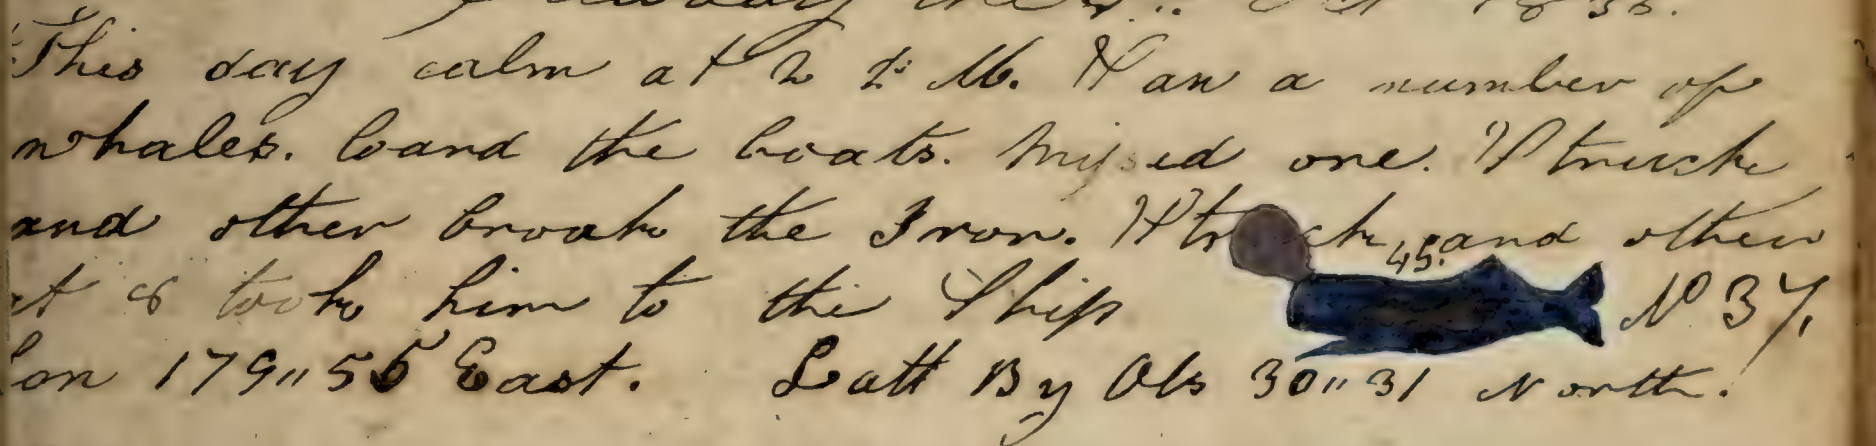 This day calm at 2 P M. Saw a number of
whales. Loard the boats. Missed one. Struck
and other broak the Iron. Struck and other
45.
at 8 took him to the Ship No 37,
Lon 179,,55 East. Latt By Obs 30,,31 North.